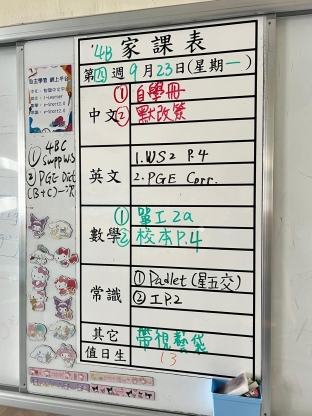 4B 家課表
第四週9月23日(星期一)
中文
① 自學冊
② 默改簽
英文
1. WS2 P.4
2. PGE Corr.
數學
① 單工2a
② 校本P.4
常識
① Padlet (星五交)
② 工P.2
其它
帶視藝袋
值日生
13
自主學習 網上平台
① 4BC
Supp WS
② PGE Dict
(B+C)一次